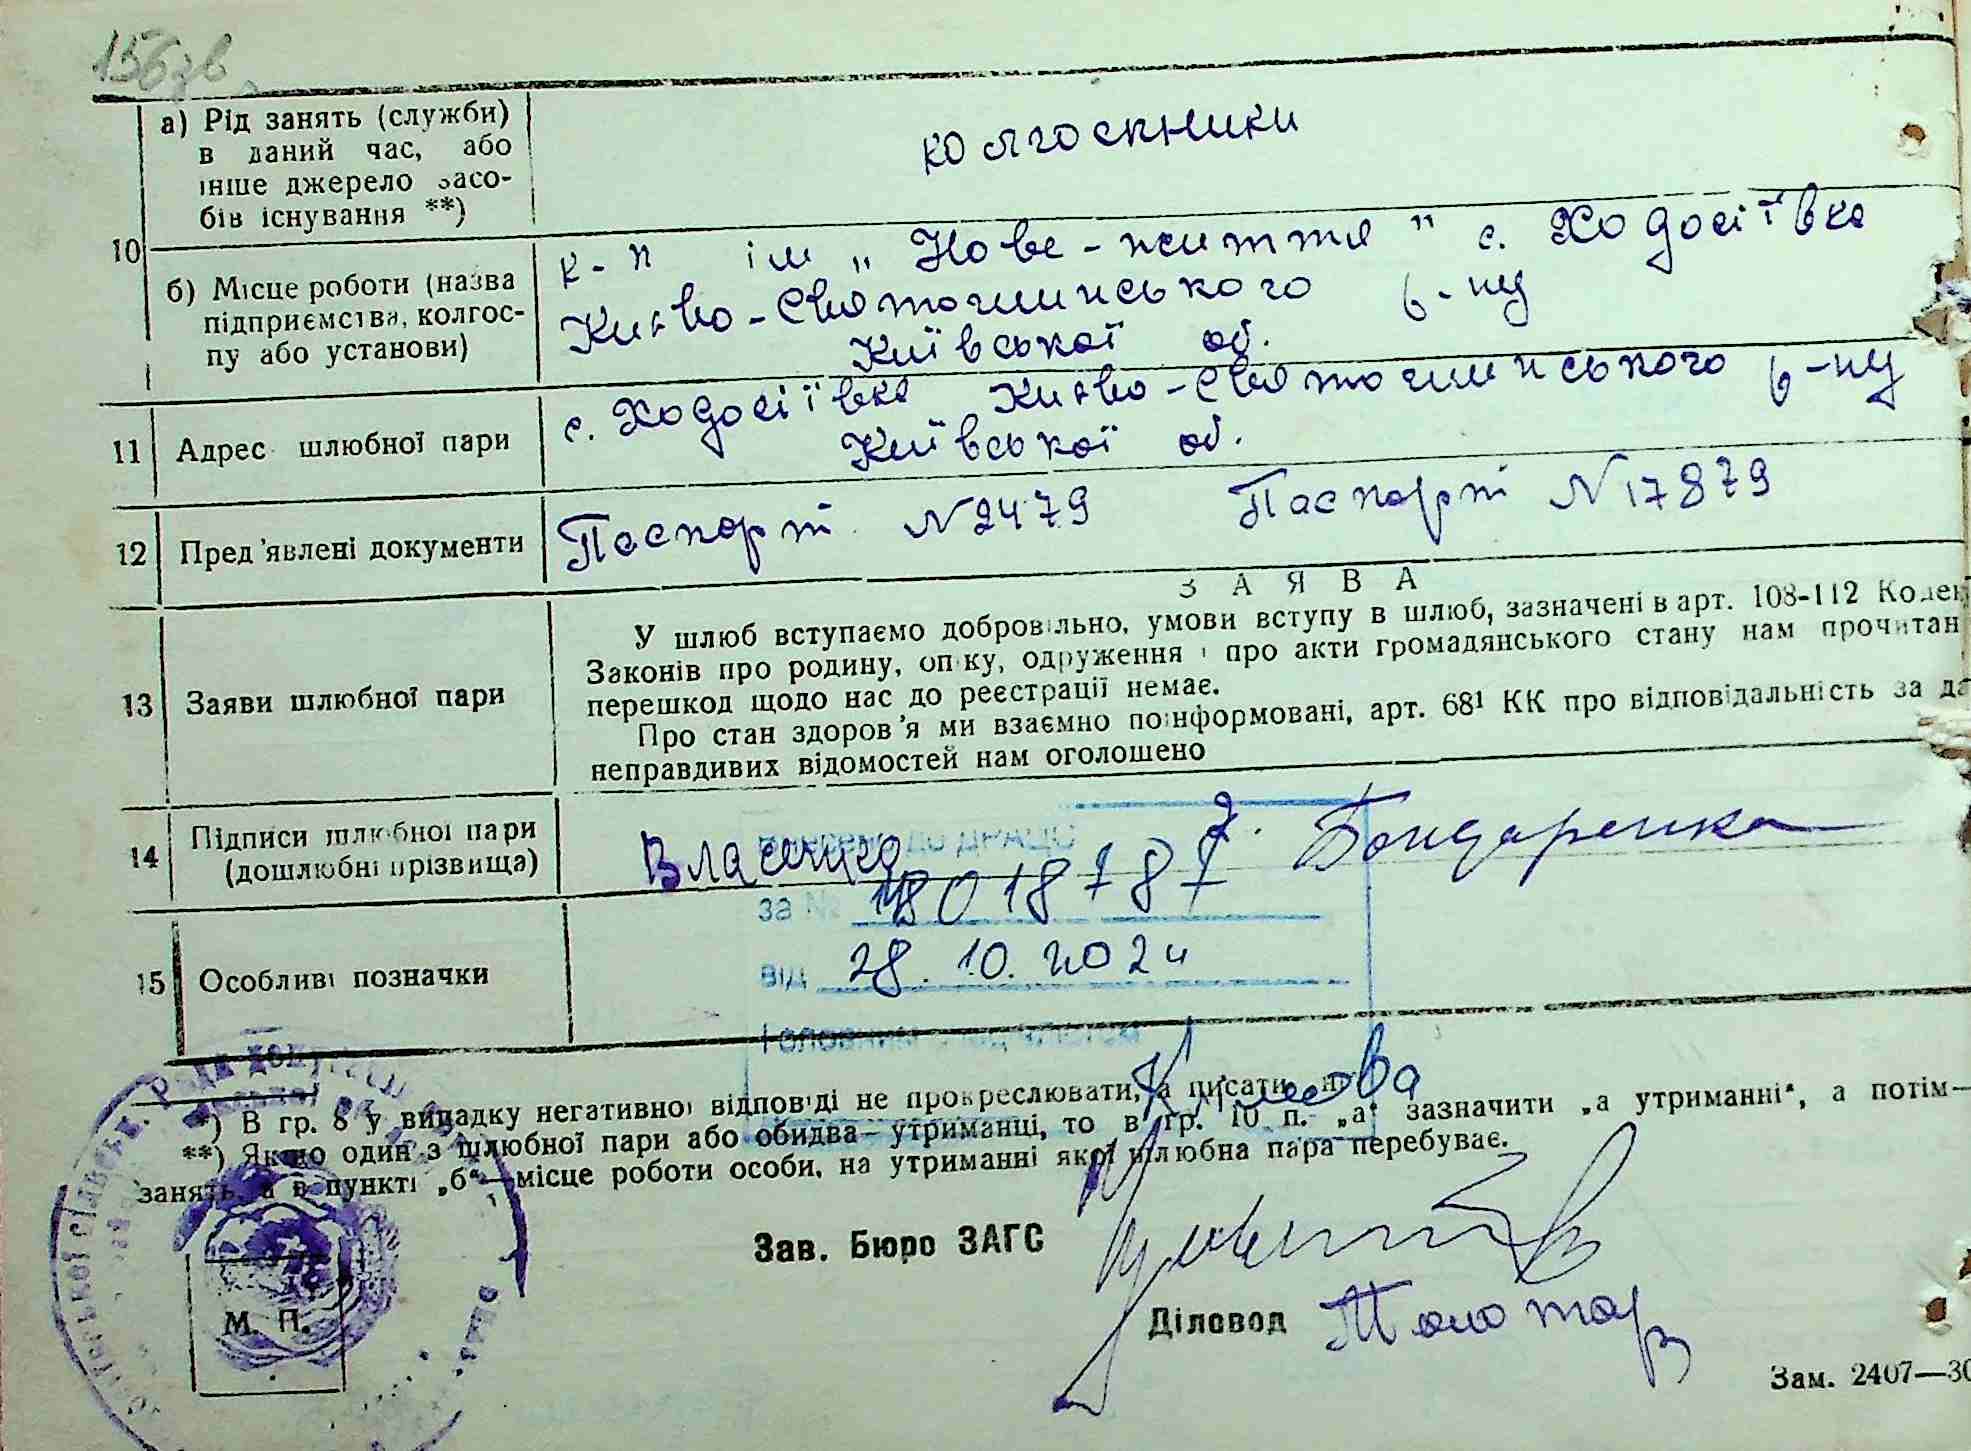 156зв
10
а) Рід занять (служби)
в даний час, або
інше джерело засо-
бів існування **)
колгоспники
б) Місце роботи (назва
підприємства, колгос-
пу або установи)
к-п ім „Нове-життя" с. Ходосіївка
Києво-Святошинського р-ну
Київської об.
11 Адрес шлюбної пари
с. Ходосіївка Києво-Святошинського р-ну
Київської об.
12 Пред'явлені документи
Паспорт N2479 Паспорт N17879
13 Заяви шлюбної пари
ЗАЯВА
У шлюб вступаємо добровільно, умови вступу в шлюб, зазначені в арт. 108-112 Кодек
Законів про родину, опіку, одруження і про акти громадянського стану нам прочитан
перешкод щодо нас до реєстрації немає.
Про стан здоров'я ми взаємно поінформовані, арт. 68¹ КК про відповідальність за да
неправдивих відомостей нам оголошено
14 Підписи шлюбної пари
(дошлюбні прізвища)
Власенко Бондаренко
до ДРАЦС
за №
від 28.10.2024
15 Особливі позначки
*) В гр. 8 у випадку негативної відповіді не прокреслювати, а писати
**) Якщо один з шлюбної пари або обидва—утриманці, то в гр. 10 п. „а" зазначити „а утриманні", а потім—
занять, а в пункті „б"—місце роботи особи, на утриманні якої шлюбна пара перебуває.
Зав. Бюро ЗАГС
М. П.
Діловод
Зам. 2407—30